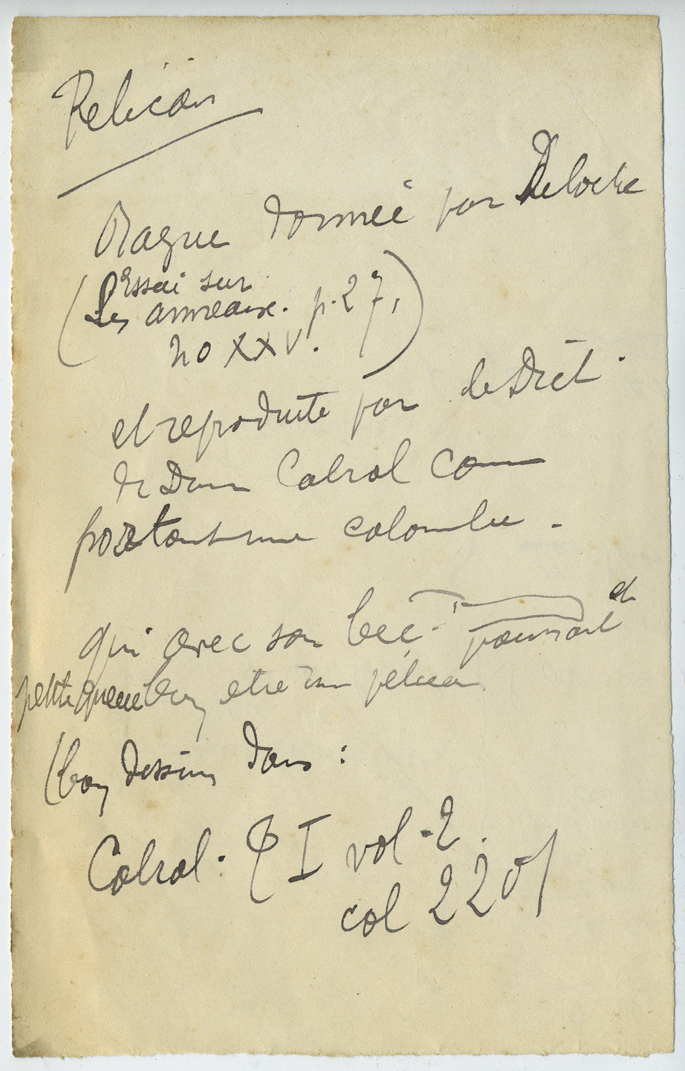 Pelican
Bague donnée par Deloche
(Essai sur
Les anneaux. p. 27,
no XXV.)
et reproduite par le Dict.
de Dom Cabrol comme
portant une colombe -
qui avec son bec et
petite queue pourrait
bien etre un pélican
(bon dessin dans :
Cabrol. T I vol. 2.
col 2201